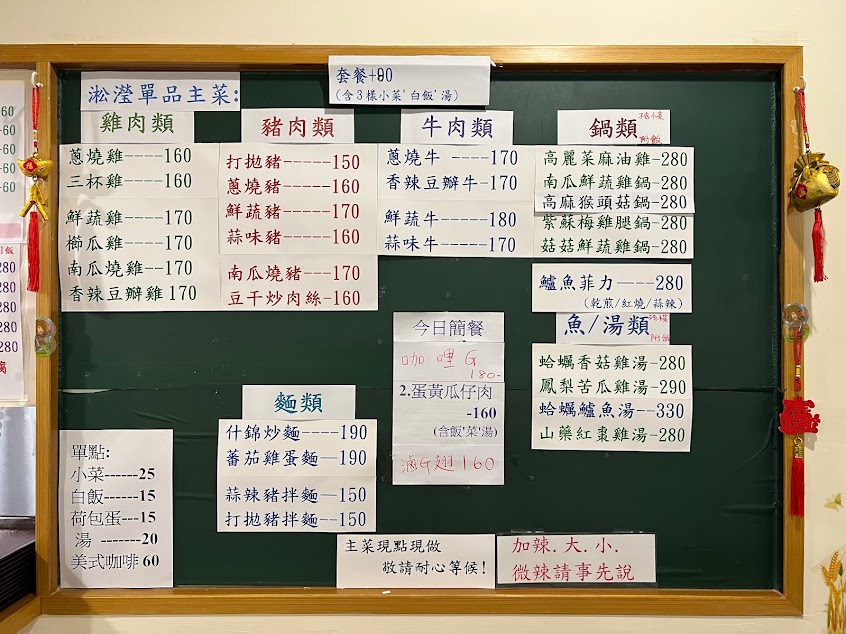 套餐+90
(含3樣小菜'白飯'湯)
淞瀅單品主菜:
雞肉類
蔥燒雞----160
三杯雞----160
鮮蔬雞----170
櫛瓜雞----170
南瓜燒雞--170
香辣豆瓣雞 170
豬肉類
打拋豬-----150
蔥燒豬-----160
鮮蔬豬-----170
蒜味豬-----160
南瓜燒豬---170
豆干炒肉絲-160
牛肉類
蔥燒牛 ----170
香辣豆瓣牛-170
鮮蔬牛-----180
蒜味牛-----170
鍋類
附飯
高麗菜麻油雞-280
南瓜鮮蔬雞鍋-280
高麻猴頭菇鍋-280
紫蘇梅雞腿鍋-280
菇菇鮮蔬雞鍋-280
鱸魚菲力----280
(乾煎/紅燒/蒜辣)
魚/湯類
附飯
蛤蠣香菇雞湯-280
鳳梨苦瓜雞湯-290
蛤蠣鱸魚湯--330
山藥紅棗雞湯-280
今日簡餐
咖哩G
180-
2.蛋黃瓜仔肉
-160
(含飯'菜'湯)
滷G翅 160
麵類
什錦炒麵----190
蕃茄雞蛋麵--190
蒜辣豬拌麵--150
打拋豬拌麵--150
單點:
小菜------25
白飯------15
荷包蛋---15
湯 -------20
美式咖啡 60
主菜現點現做
敬請耐心等候!
加辣.大.小.
微辣請事先說
60
-60
-60
-60
-60
280
280
280
280